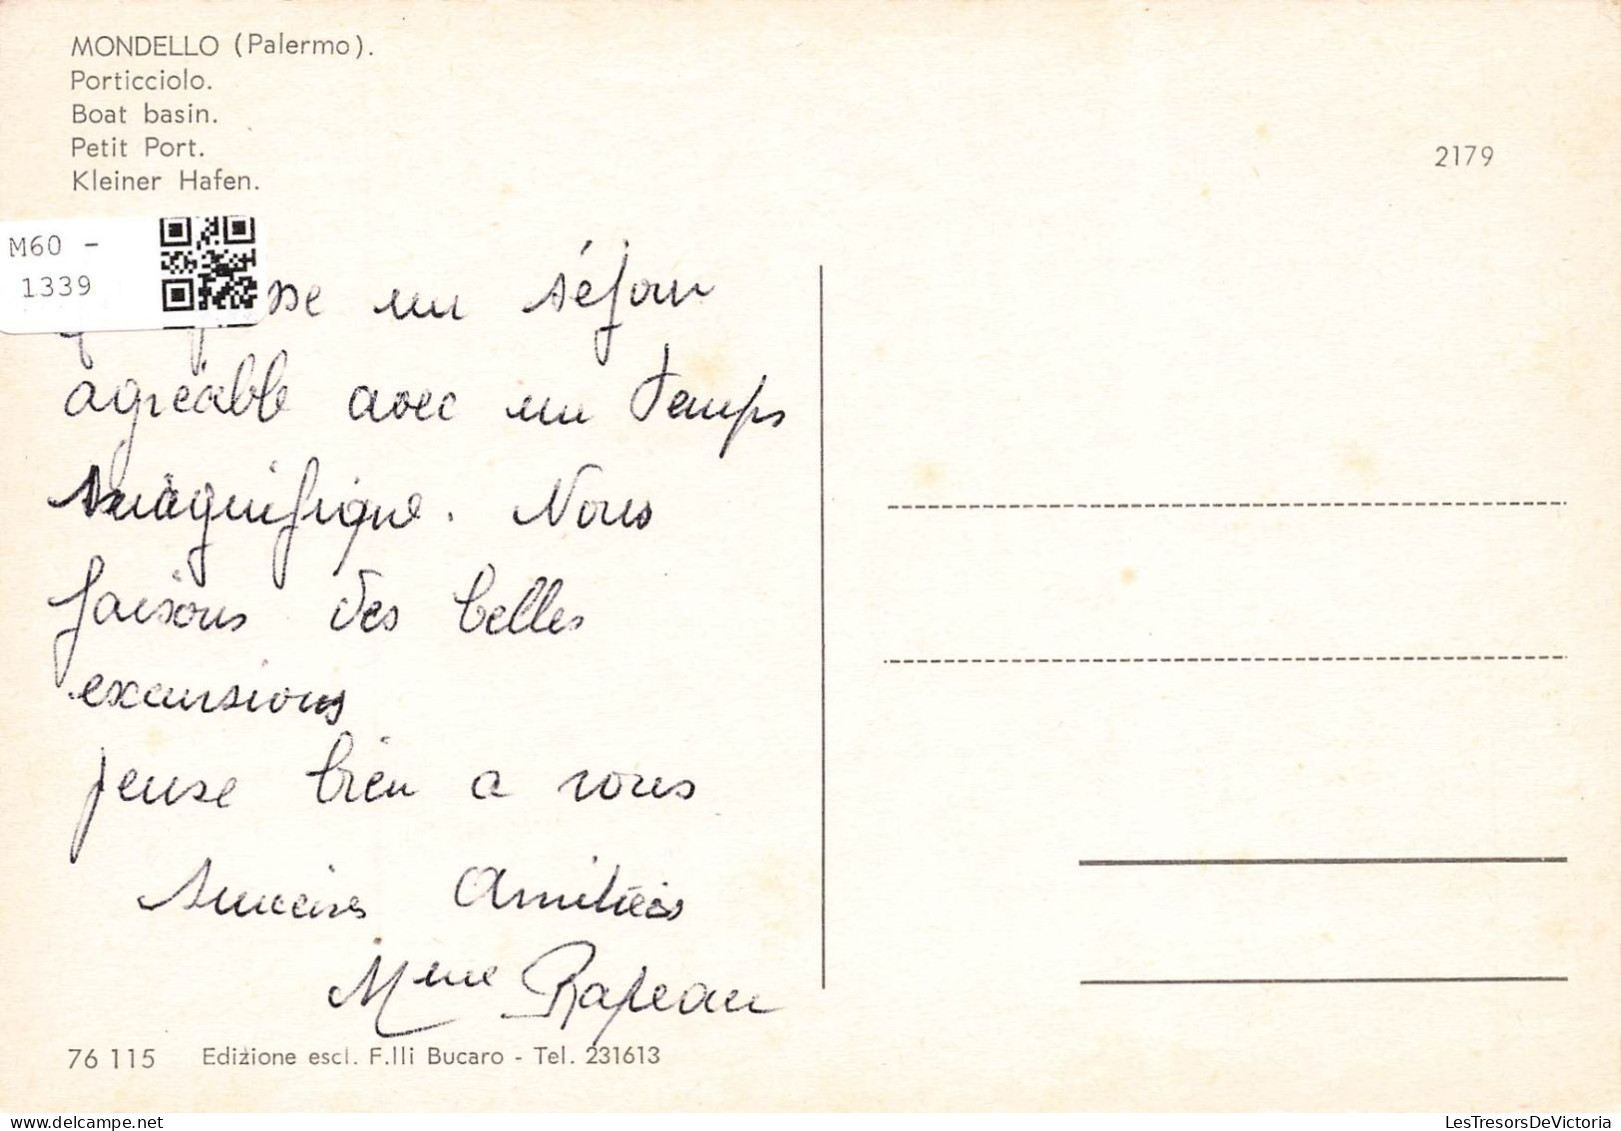 MONDELLO (Palermo).
Porticciolo.
Boat basin.
Petit Port.
Kleiner Hafen.
2179
M60 -
1339
un séjour
agréable avec un temps
magnifique. Nous
faisons des belles
excursions
pense bien a vous
Sincères Amitiés
Mme Rapeau
76 115 Edizione escl. F.lli Bucaro - Tel. 231613
LesTresorsDeVictoria